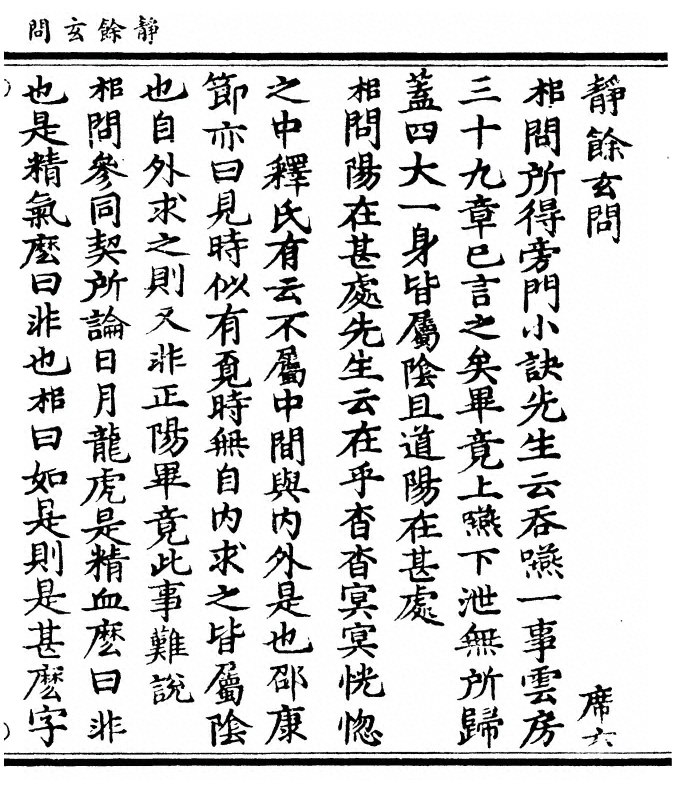 靜餘玄問
靜餘玄問 席六
相問所得旁門小訣先生云吞嚥一事雲房
三十九章已言之矣畢竟上嚥下泄無所歸
蓋四大一身皆屬陰且道陽在甚處
相問陽在甚處先生云在乎杳杳冥冥恍惚
之中釋氏有云不屬中間與內外是也邵康
節亦曰見時似有覓時無自內求之皆屬陰
也自外求之則又非正陽畢竟此事難說
相問參同契所論日月龍虎是精血麼曰非
也是精氣麼曰非也相曰如是則是甚麼字